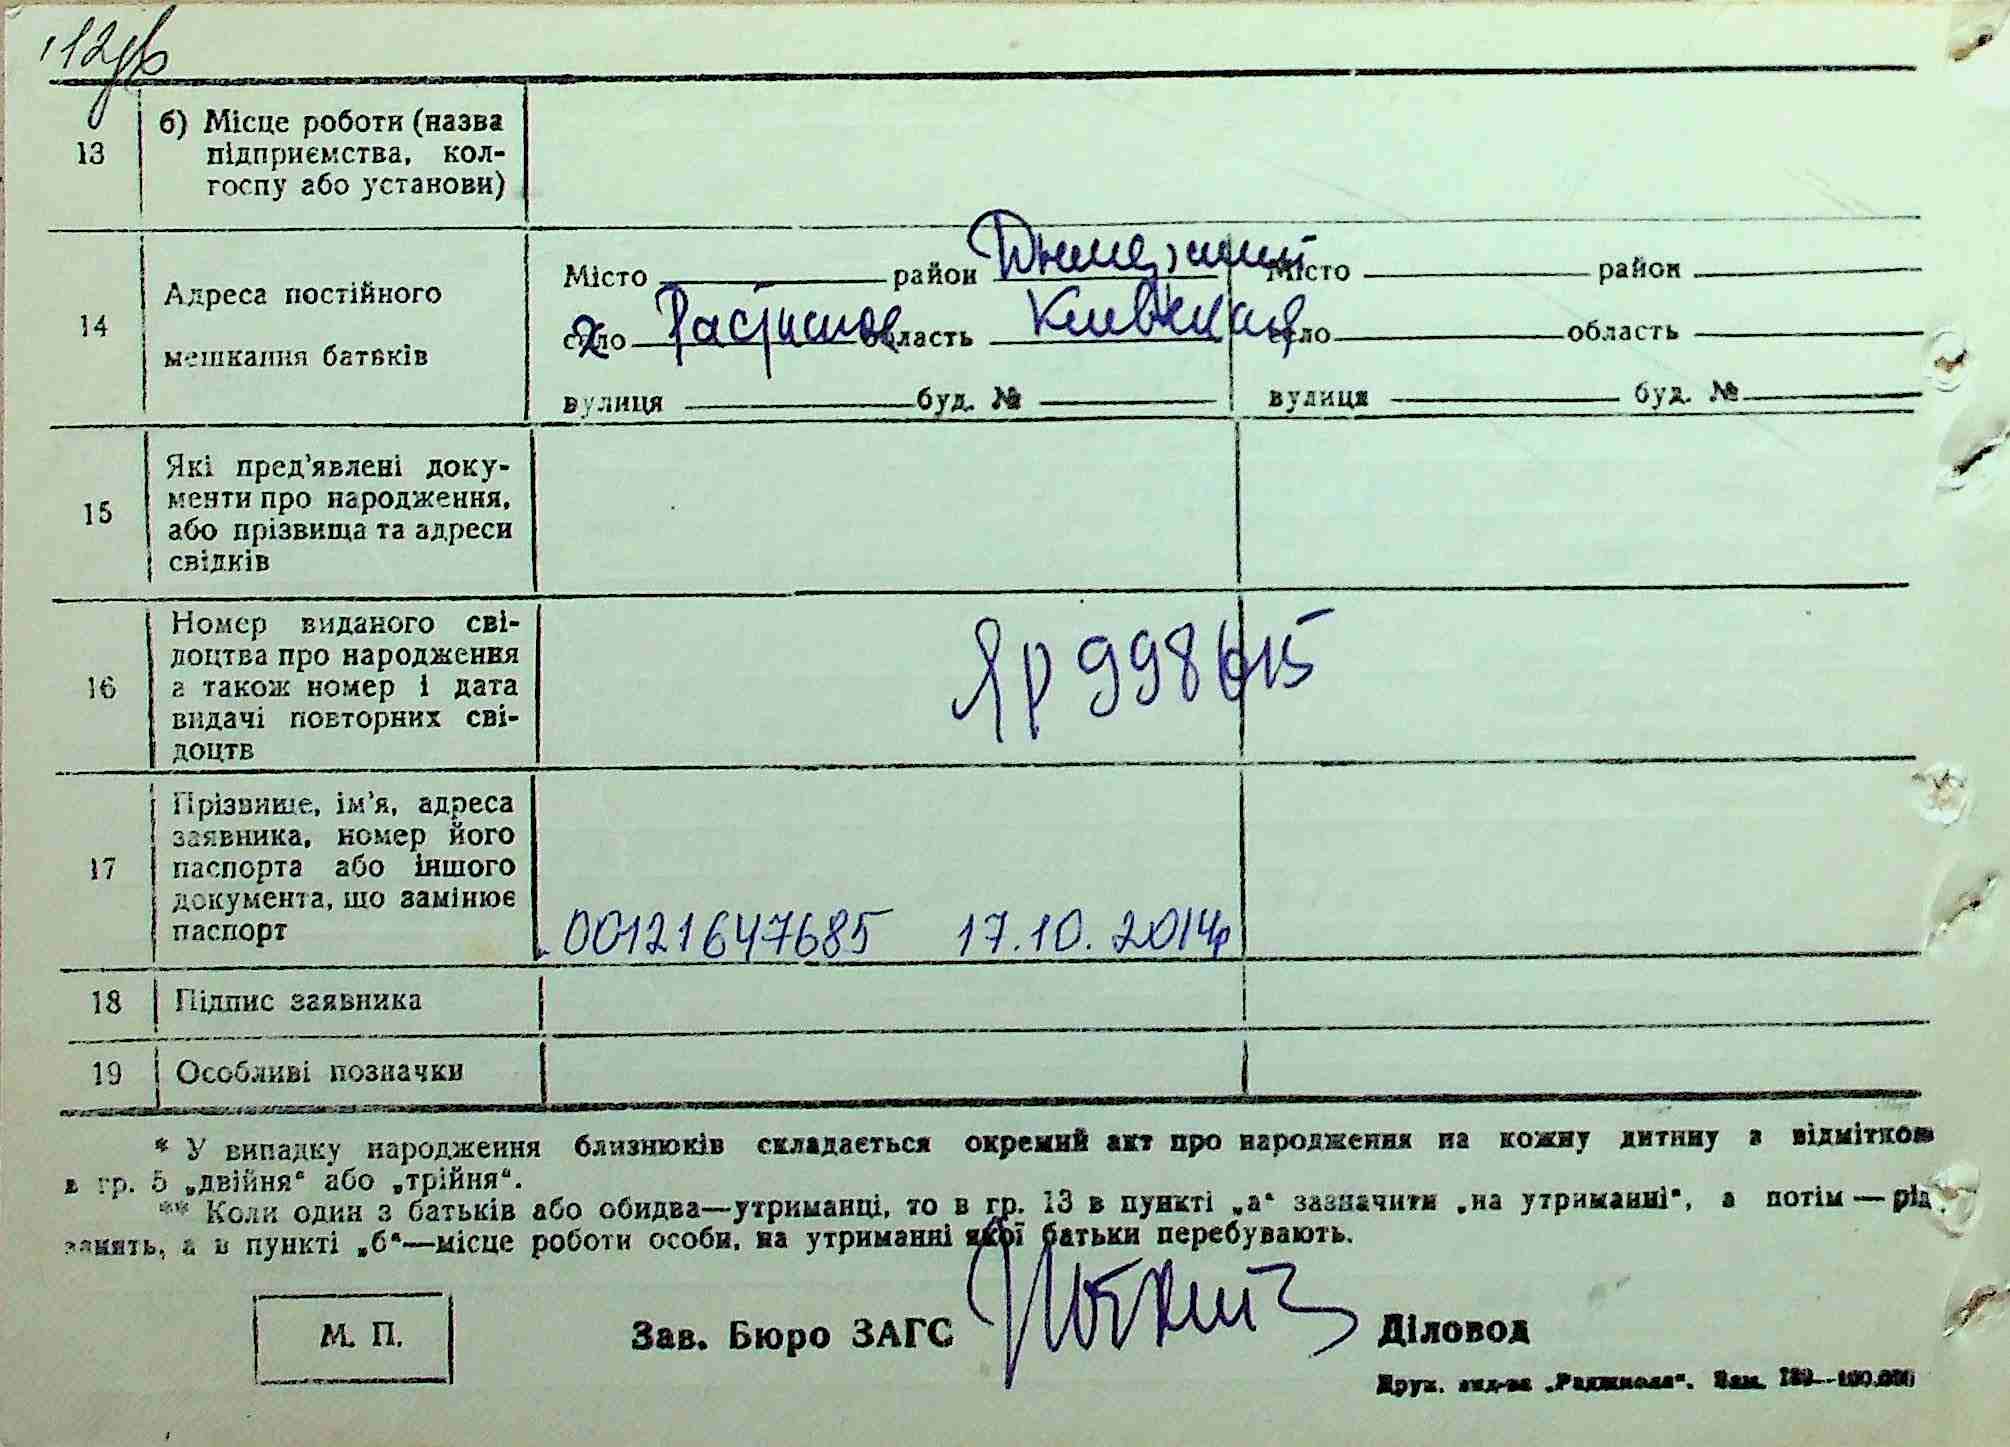 13
б) Місце роботи (назва
підприємства, кол-
госпу або установи)
14
Адреса постійного
мешкання батьків
Місто район Дымерский
село область Киевская
вулиця буд. №
Місто район
село область
вулиця буд. №
15
Які пред'явлені доку-
менти про народження,
або прізвища та адреси
свідків
16
Номер виданого сві-
доцтва про народження
а також номер і дата
видачі повторних сві-
доцтв
ЯР 998615
17
Прізвище, ім'я, адреса
заявника, номер його
паспорта або іншого
документа, що замінює
паспорт
00121647685 17.10.2014р
18
Підпис заявника
19
Особливі позначки
* У випадку народження близнюків складається окремий акт про народження на кожну дитину з відміткою
в гр. 5 „двійня“ або „трійня“.
** Коли один з батьків або обидва—утриманці, то в гр. 13 в пункті „а“ зазначити „на утриманні“, а потім — рід
занять, а в пункті „б“—місце роботи особи, на утриманні якої батьки перебувають.
М. П.
Зав. Бюро ЗАГС
Діловод
Друк. вид-ва „Радшкола“. Зам.